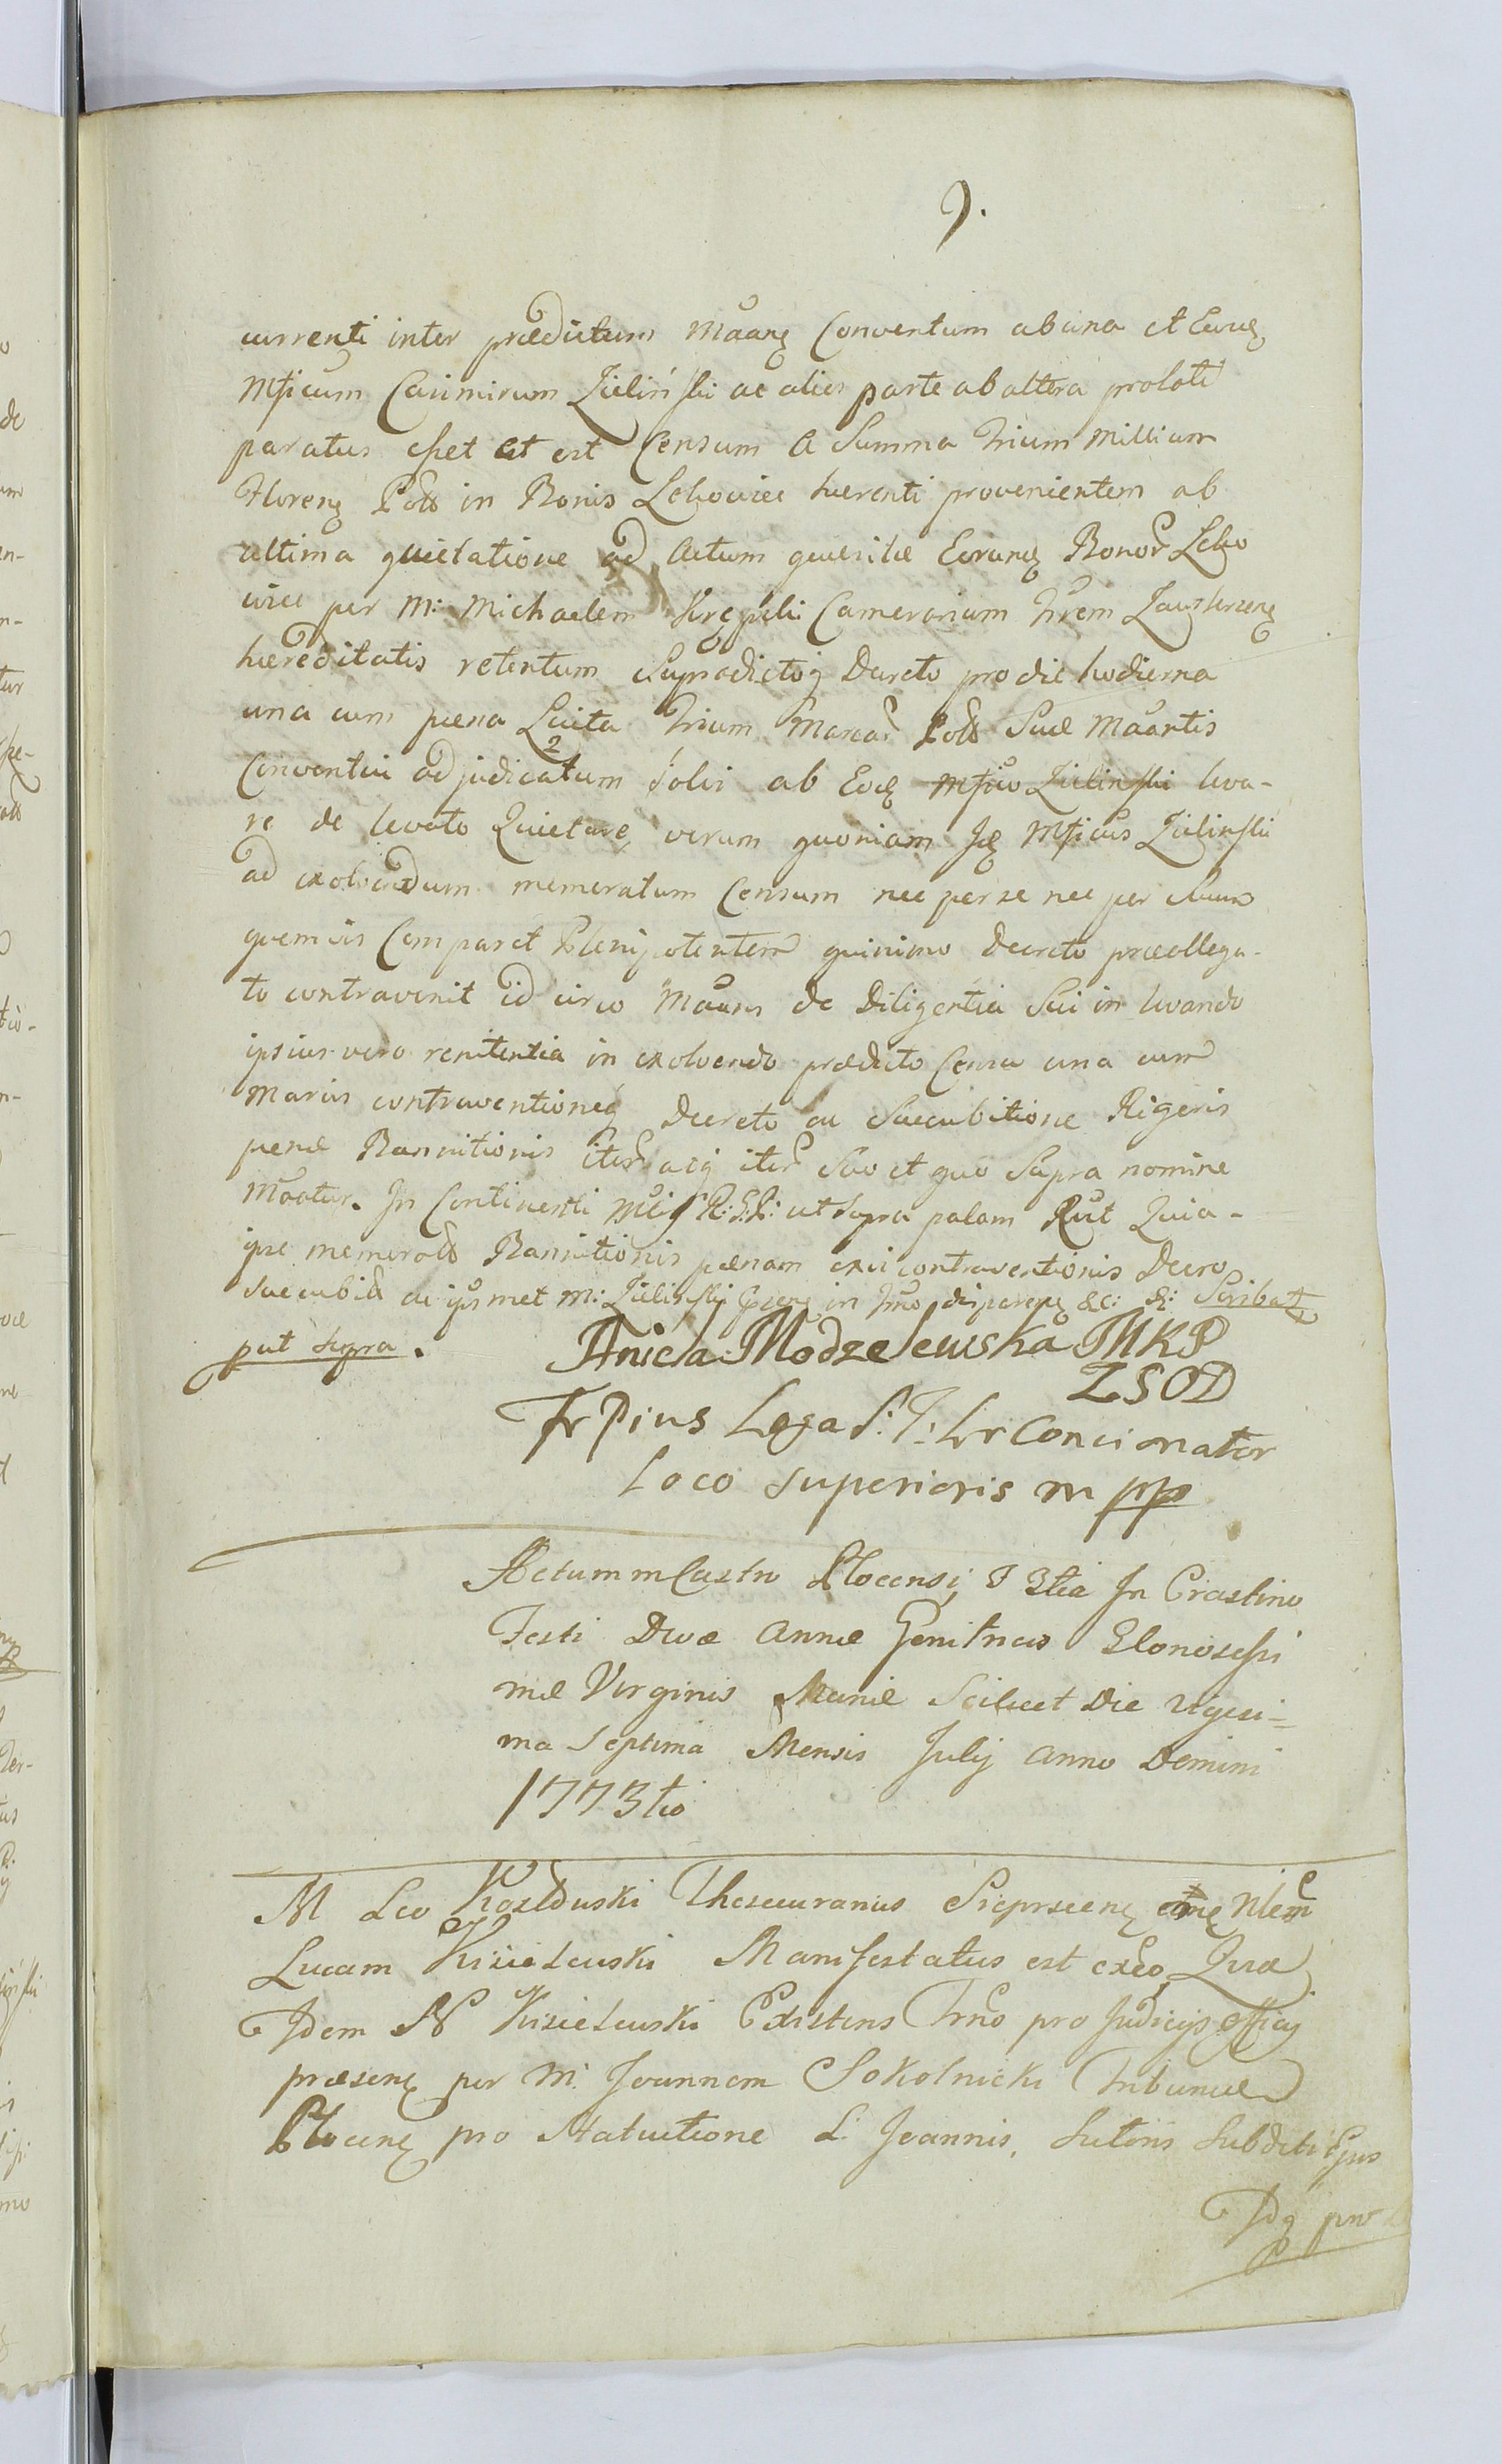 9.
currenti inter prædictum Mãanę Conventum ab una et Eundę
Mficum Casimirum Zieliński ac alios parte ab altera prolati
paratus esset et est Censum a Summa Trium Millium
Florenę Poll in Bonis Lelowice hærenti provenientem ab
ultima quietatione ad Actum quæsitæ Eorundę Bonor Lelo
wice per M: Michaelem Krępski Camerarium Trrem Zawskrzenę
hæreditatis retentum Supradictoq Decreto pro die hodierna
una cum pæna Luita Trium Marcar Poll Suæ Mãantis
Conventui adjudicatum solvi ab Eodę Mfico Zielinski leva-
re de levato Quietare, verum quoniam Idę Mficus Zielinski
ad exolvendum memoratum Censum nec per se nec per Suum
quemvis Comparet Plenipotentem quinimo Decreto præallega-
to contravenit id circo Mãans de Diligentia Sui in levando
ipsius vero renitentia in exolvendo prædicto Censu una cum
Marcis contraventioneq Decreto ac Succubitione Rigoris
pænæ Bannitionis iter acq iter Suo et quo Supra nomine
Mãatur. In Continenti Mtięg R: S: R: ut supra palam Rut Quia-
ipse memorad Bannitionis pænam exvi contraventionis Decro
succubit ac ipsmet M: Zielinski Ipsenę in Trmo disparenę &c: &: Scribat
put supra.
Aniela Modzelewska MKP
ZSOD
Fr Pius Loga S: T: Lr Concionator
Loco Superioris m pp
Actum in Castro Plocensi F 3tia In Crastino
Festi Divæ Annæ Genitricis Gloriosissi
mæ Virginis Mariæ Scilicet Die Vigesi=
ma Septima Mensis Julij Anno Domini
1773tio
M Leo Kozłowski Thesaurarius Sieprscenę Nlem
Lucam Kisielewski Manifestatus est exeo Quia
Idem N Kisielewski Existens Trno pro Judicijs officij
præsenę per M. Joannem Sokolnicki Tribunum
Plocenę pro Statuitione L: Joannis, Sutoris Subditi Ejus
Idq pnt